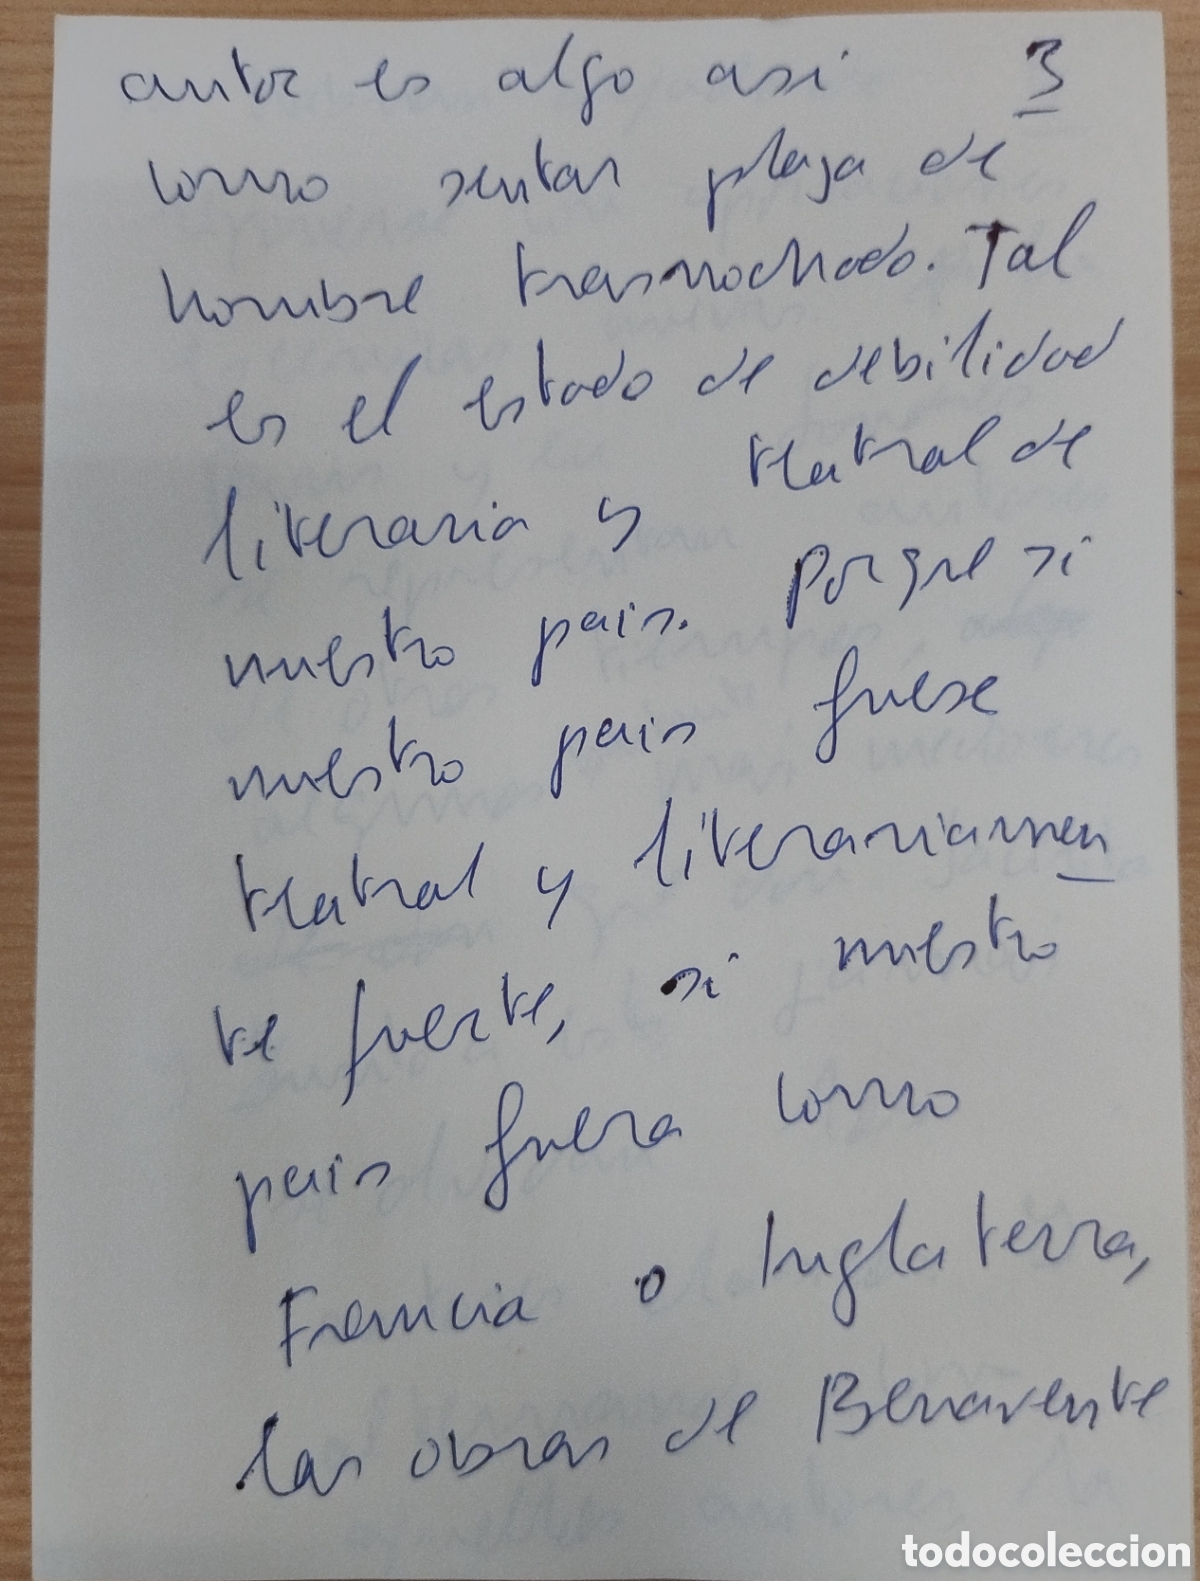 autor es algo asi 3
como sentar plaza de
hombre trasnochado. Tal
es el estado de debilidad
literaria y teatral de
nuestro pais. Porque si
nuestro pais fuese
teatral y literariamen
te fuerte, si nuestro
pais fuera como
Francia o Inglaterra,
las obras de Benavente
todocoleccion